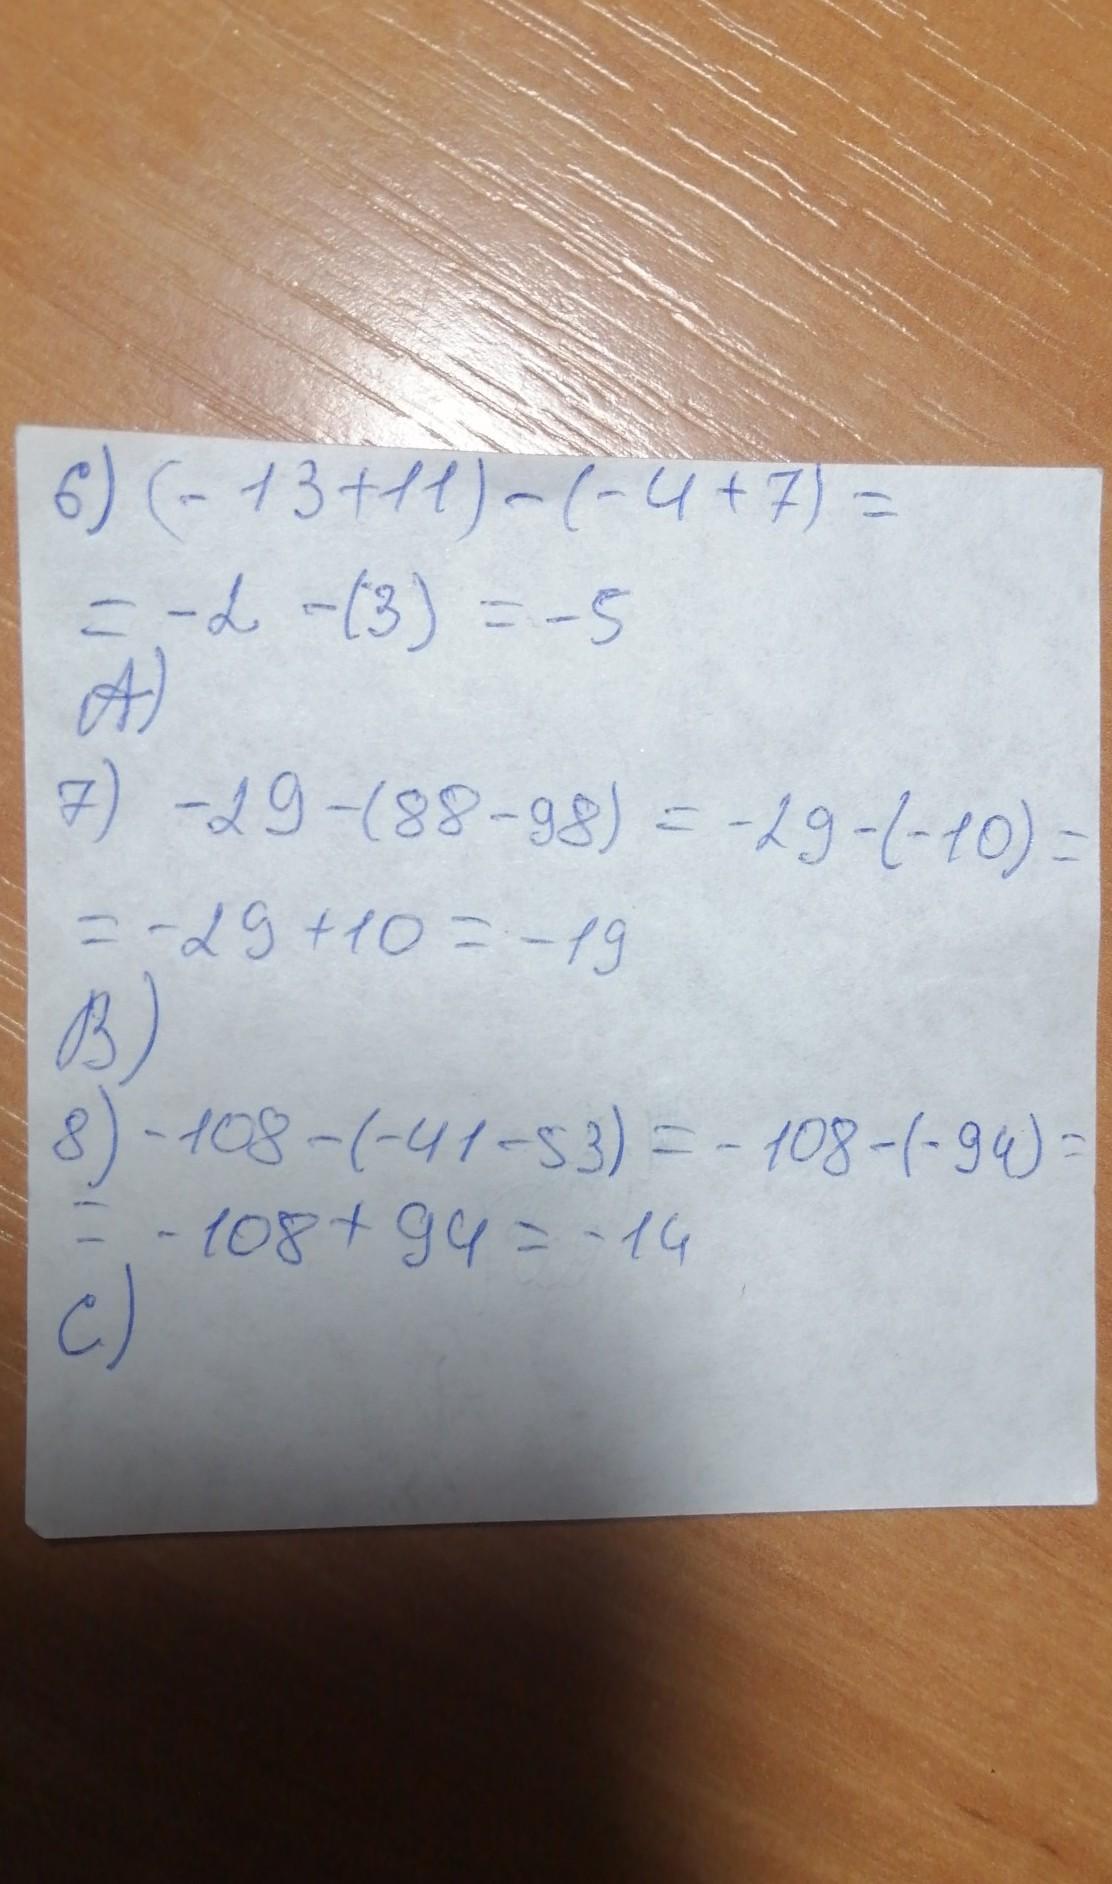 6) (-13+11)-(-4+7)=
= -2 -(3) = -5
A)
7) -29-(88-98) = -29-(-10)=
= -29+10 = -19
B)
8) -108-(-41-53) = -108-(-94)=
= -108+94 = -14
C)